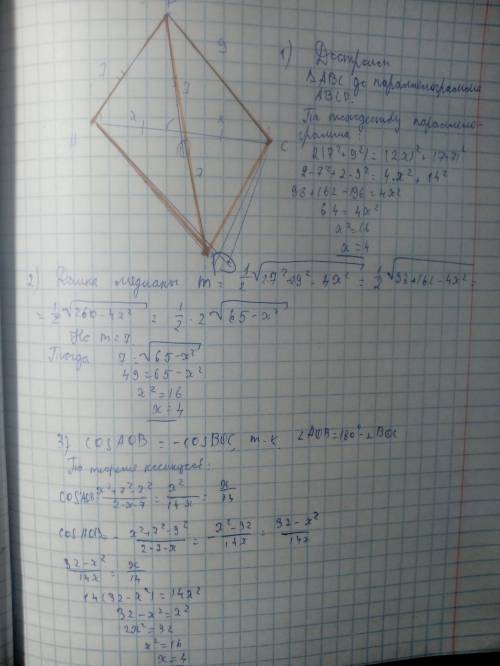 B
9
7
7
x
x
A
C
7
1) Достроим
ΔABC до параллелограмма
ABCD.
По тождеству параллело-
грамма:
2(7²+9²)=(2x)²+(7+7)²
2·7²+2·9²=4·x²+14²
98+162-196=4x²
64=4x²
x²=16
x=4
2) Длина медианы m = 1/2 √(2·7²+2·9²-4x²) = 1/2 √(98+162-4x²) =
= 1/2 √(260-4x²) = 1/2 · 2 √(65-x²)
Но m=7
Тогда 7=√(65-x²)
49=65-x²
x²=16
x=4
3) cosAOB = -cosBOC, т.к. ∠AOB=180°-∠BOC
По теореме косинусов:
cosAOB = (x²+7²-7²)/(2·x·7) = x²/14x = x/14
cosAOB = - (x²+7²-9²)/(2·7·x) = - (x²-32)/14x = (32-x²)/14x
(32-x²)/14x = x/14
14(32-x²)=14x²
32-x²=x²
2x²=32
x²=16
x=4